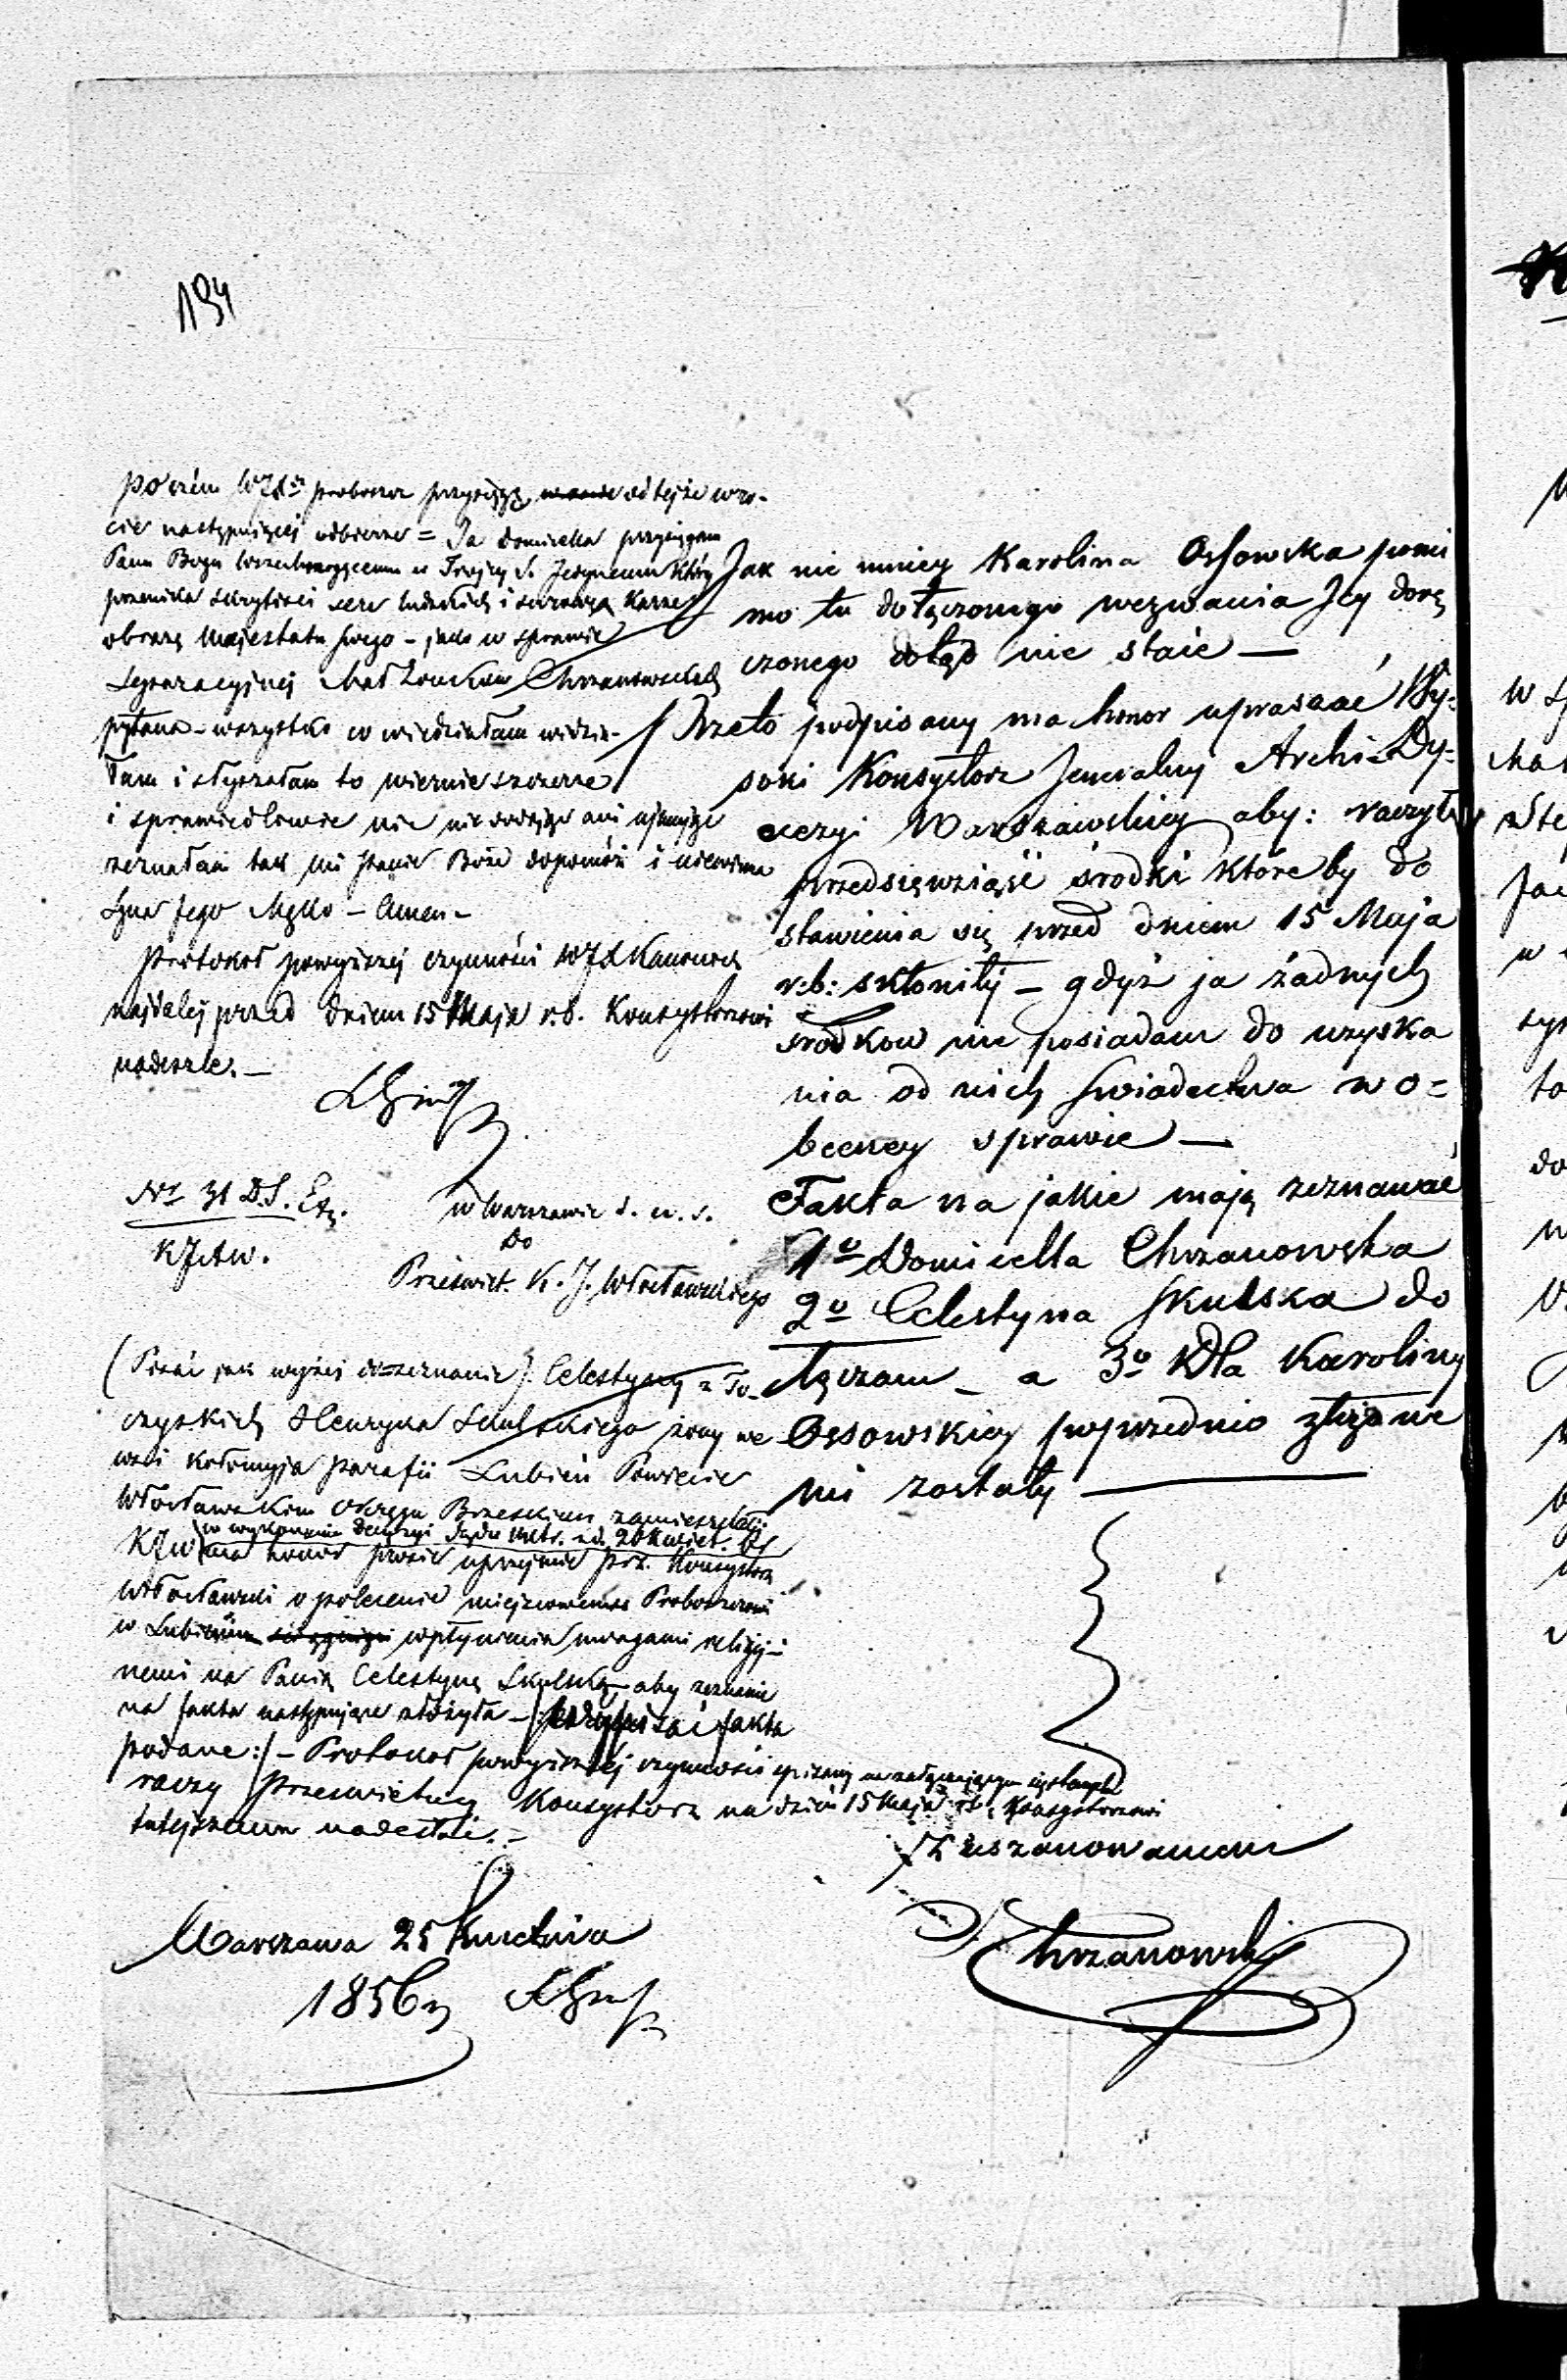 194
po czém WJX proboszcz przysięgę od tejże wro-
cie następującej odbierze = Ja Domicella przysięgam
Panu Bogu Wszechmogącemu w Trójcy S. Jedynemu który
przenika skrytości serc ludzkich i surowo karze
obrazę Majestatu swego - jako w sprawie
separacyjnej Małżonków Chrzanowskich
pytana - wszystko co wiedziałam widzia-
łam i słyszałam to wiernie szczerze
i sprawiedliwie nic nie dodając ani ujmując
zeznałam tak mi Panie Boże dopomóż i niewinna
Syna Jego Męko - Amen -
Protokół powyższej czynności WJX Kanonik
najdalej przed dniem 15 Maja r.b. Konsystorzowi
nadeszle. -
Nr 31 D.S. Ex.
KJAW.
w Warszawie d. u. s.
Do
Przeświet. K. J. Włocławskiego
(Pisać jak wyżej zeznanie): Celestyny z To-
czyskich Henryka Skulskiego żony we
wsi Kołomyja Parafii Lubień Powiecie
Włocławskim Okręgu Brzeskim zamieszkałej
w wykonaniu Decyzji Sądu Metr. z d. 20 Kwiet. br
ma honor prosić uprzejmie prz. Konsystorz
Włocławski o polecenie miejscowemu Proboszczowi
w Lubieniu wpłynienia uwagami religij-
nemi na Panią Celestynę Skulską, aby zeznanie
na fakta następujące złożyła - przepisać fakta
podane :/ - Protokół powyższej czynności spisany
raczy Prześwietny Konsystorz na dzień 15 Maja rb. Konsystorzowi
tutejszemu nadesłać. =
Warszawa 25 Kwietnia
1856
Jak nie mniey Karolina Ossowska pomi
mo tu dołączonego wezwania Jey dorę
czonego dotąd nie staie —
Przeto podpisany ma honor upraszać Wy-
soki Konsystorz Jeneralny Archi-Dy-
ecezyi Warszawskiey aby: raczył
przedsięwziąść środki któreby do
stawienia się przed dniem 15 Maja
r:b: skłoniły - gdyż ja żadnych
środkow nie posiadam do uzyska
nia od nich świadectwa w o=
becney sprawie —
Fakta na jakie mają zeznawać
1o Domicella Chrzanowska
2o Celestyna Skulska do
łączam - a 3o Dla Karoliny
Ossowskiey poprzednio złożone
mi zostały —
Z uszanowaniem
Chrzanowski